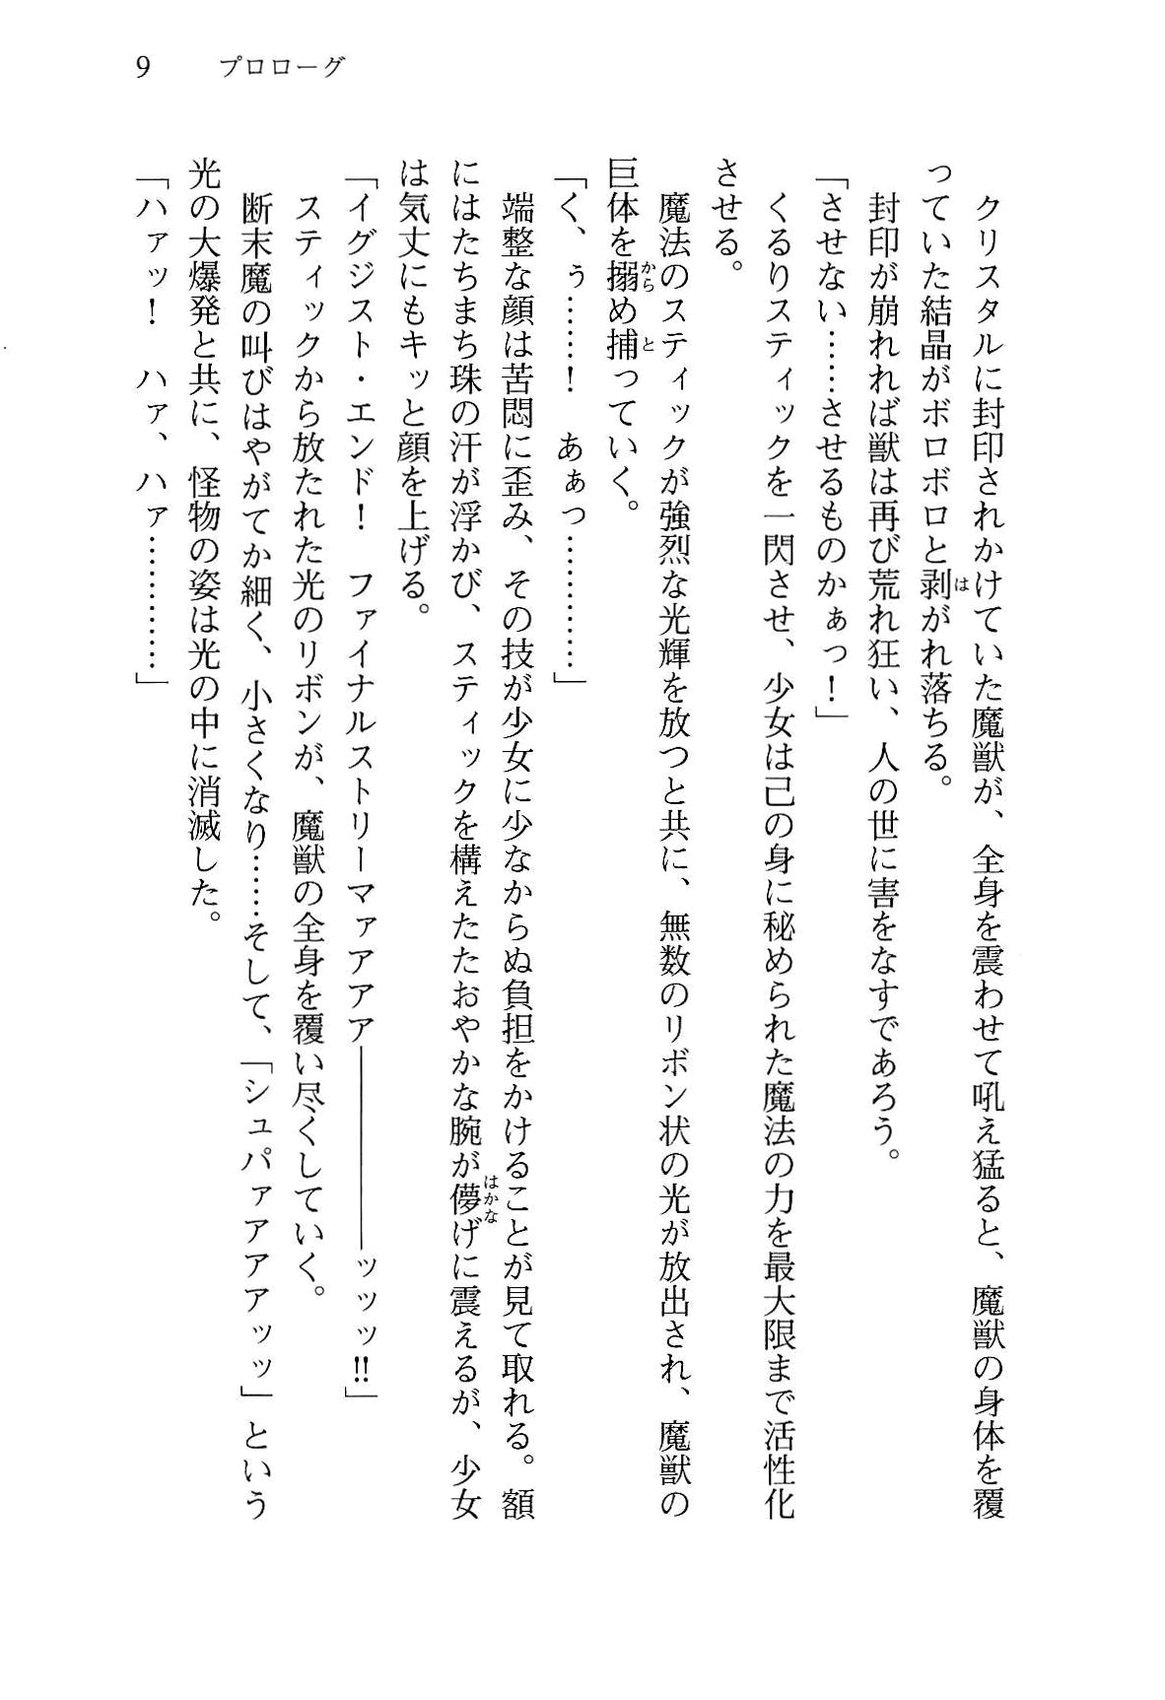 9　プロローグ
　クリスタルに封印されかけていた魔獣が、全身を震わせて吼え猛ると、魔獣の身体を覆
っていた結晶がボロボロと剥がれ落ちる。
　封印が崩れれば獣は再び荒れ狂い、人の世に害をなすであろう。
「させない……させるものかぁっ！」
　くるりスティックを一閃させ、少女は己の身に秘められた魔法の力を最大限まで活性化
させる。
　魔法のスティックが強烈な光輝を放つと共に、無数のリボン状の光が放出され、魔獣の
巨体を搦め捕っていく。
「く、ぅ……！　あぁっ…………」
　端整な顔は苦悶に歪み、その技が少女に少なからぬ負担をかけることが見て取れる。額
にはたちまち珠の汗が浮かび、スティックを構えたたおやかな腕が儚げに震えるが、少女
は気丈にもキッと顔を上げる。
「イグジスト・エンド！　ファイナルストリーマァアアア――――――ッッッ!!」
　スティックから放たれた光のリボンが、魔獣の全身を覆い尽くしていく。
　断末魔の叫びはやがてか細く、小さくなり……そして、「シュパァアアアッッ」という
光の大爆発と共に、怪物の姿は光の中に消滅した。
「ハァッ！　ハァ、ハァ…………」